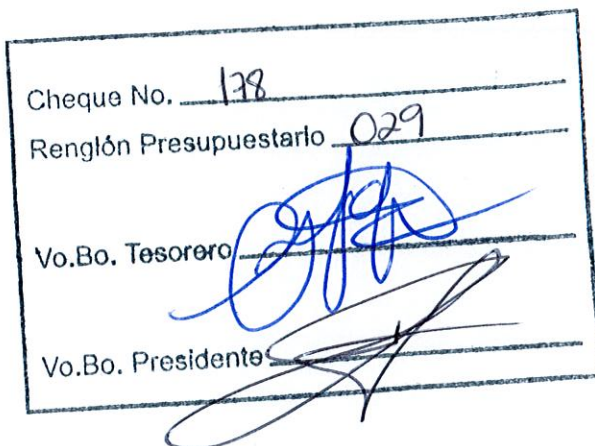 Cheque No. 178
Renglón Presupuestario 029
Vo.Bo. Tesorero
Vo.Bo. Presidente